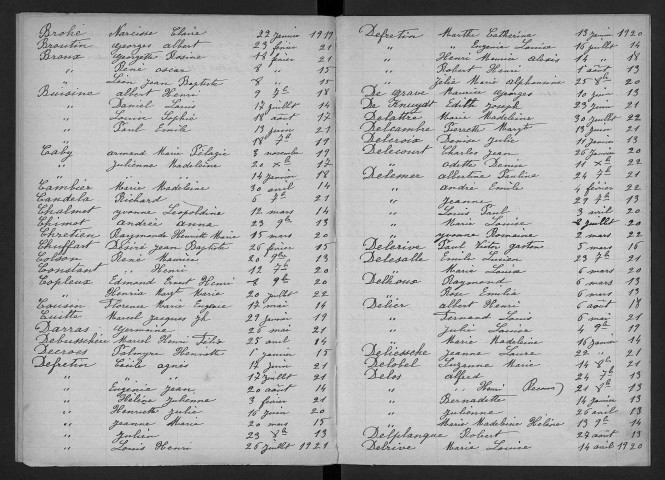 Brohé Narcisse Claire 22 janvier 1919
Broutin Georges Albert 23 février 21
Broux Georgette Rosine 18 février 21
" René Oscar 8 " 15
" Léon Jean Baptiste 8 "
Buisine Albert Henri 9 7bre 18
" Daniel Louis 17 juillet 14
" Louise Sophie 18 août 17
" Paul Emile 13 juin 21
18 7bre 19
Caby Armand Marie Pélagie 3 novembre 19
" Julienne Madeleine 20 Xbre 17
" 14 janvier 18
Cambier Marie Madeleine 30 avril 14
Candela Richard 6 7bre 21
Chalmet Yvonne Léopoldine 12 mars 14
Chimot Andrée Anna 23 9bre 13
Chrétien Raymonde Henriette Marie 15 mars 20
Chuffart Désiré Jean Baptiste 26 février 15
Colson René Maurice 20 9bre 13
Constant " Henri 12 7bre 20
Copleux Edmond Ernest Henri 8 9bre 20
" Henria Marguerite Marie 20 juillet 22
Cousson Florence Marie 17 mai 14
Cuitte Marcel Jacques Jh 29 janvier 19
Darras Germaine 26 mai 21
Debuisschere Marcel Henri Félix 25 avril 14
Decroës Palmyre Henriette 1 janvier 15
Defretin Cécile Agnès 17 juin 21
" " 17 juillet 21
" Eugénie Jean 20 août 14
" Hélène Julienne 3 février 21
" Henriette Julie 16 juin 20
" Jeanne Marie 20 mars 15
" Julien 23 8bre 13
" Louis Henri 26 juillet 1921
Defretin Marthe Catherine 13 janvier 1920
" " Eugénie Louise 16 juillet 14
" Henri Maurice Aloïs 14 " 18
" Robert Henri 1er août 13
" Julia Marie Alphonsine 25 8bre 20
De Grave Maurice Georges 10 juin 13
De Knuydt Edith Joseph 23 juin 21
Delattre Marie Madeleine 30 juillet 22
Delcambre Pierrette Margte 13 juin 21
Delcroix Denise Julie 11 janvier 13
Delecourt Charles Jean 26 janvier 20
" Odette Denise 11 Xbre 22
Delemer Albertine Pauline 24 7bre 21
" André Emile 4 février 22
" Jeanne 29 7bre 13
" Louis Paul 3 avril 20
" Marie Louise 2 juillet 20
" Yvonne Romaine 2 mars 22
Delerive Paul Victor Gaston 5 mars 16
Delesalle Emile Lucien 23 7bre 21
" Marie Louise 6 mars 20
Delhoux Raymond 6 mars 13
" Rose Emilia 6 mars 13
Delier Albert Henri 6 août 18
" Fernand Louis 6 mai 21
" Julia Louise 4 9bre 19
" Marie Madeleine 16 janvier 14
Deliessche Jeanne Laure 22 " 21
Delobel Suzanne Marie 14 8bre 21
Delos Alfred 24 7bre 13
" " Henri (Recours) 21 8bre 13
" Bernadette 14 juin 13
" Julienne 26 avril 13
" Marie Madeleine Hélène 13 9bre 14
Delplanque Robert 27 août 13
Delrive Marie Louise 14 avril 1920